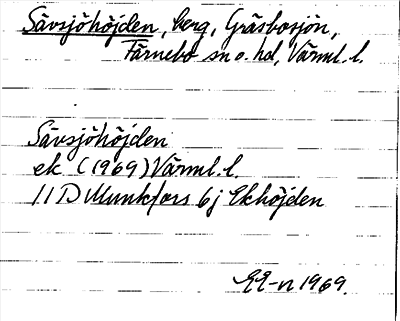 Sävsjöhöjden, berg, Gräsbosjön,
Färnebo sn o. hd, Värml. l.
Sävsjöhöjden
ek (1969) Värml. l.
11 D Munkfors 6j Ekhöjden
1969.